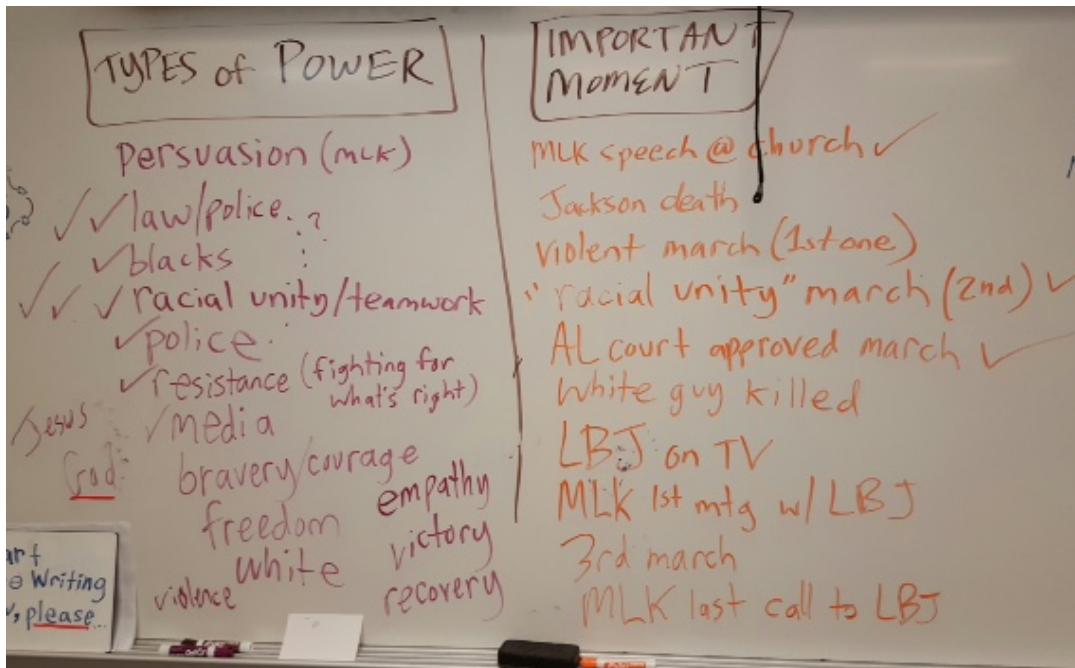 TYPES of POWER
persuasion (MLK)
✓ ✓ law/police. ?
✓ blacks
✓ ✓ ✓ racial unity/teamwork
✓ police
✓ resistance (fighting for
what's right)
Jesus
✓ media
God
bravery/courage
empathy
freedom
victory
white
violence
recovery
IMPORTANT
MOMENT
MLK speech @ church ✓
Jackson death
violent march (1st one)
"racial unity" march (2nd) ✓
AL court approved march ✓
White guy killed
LBJ on TV
MLK 1st mtg w/ LBJ
3rd march
MLK last call to LBJ
Writing
please...